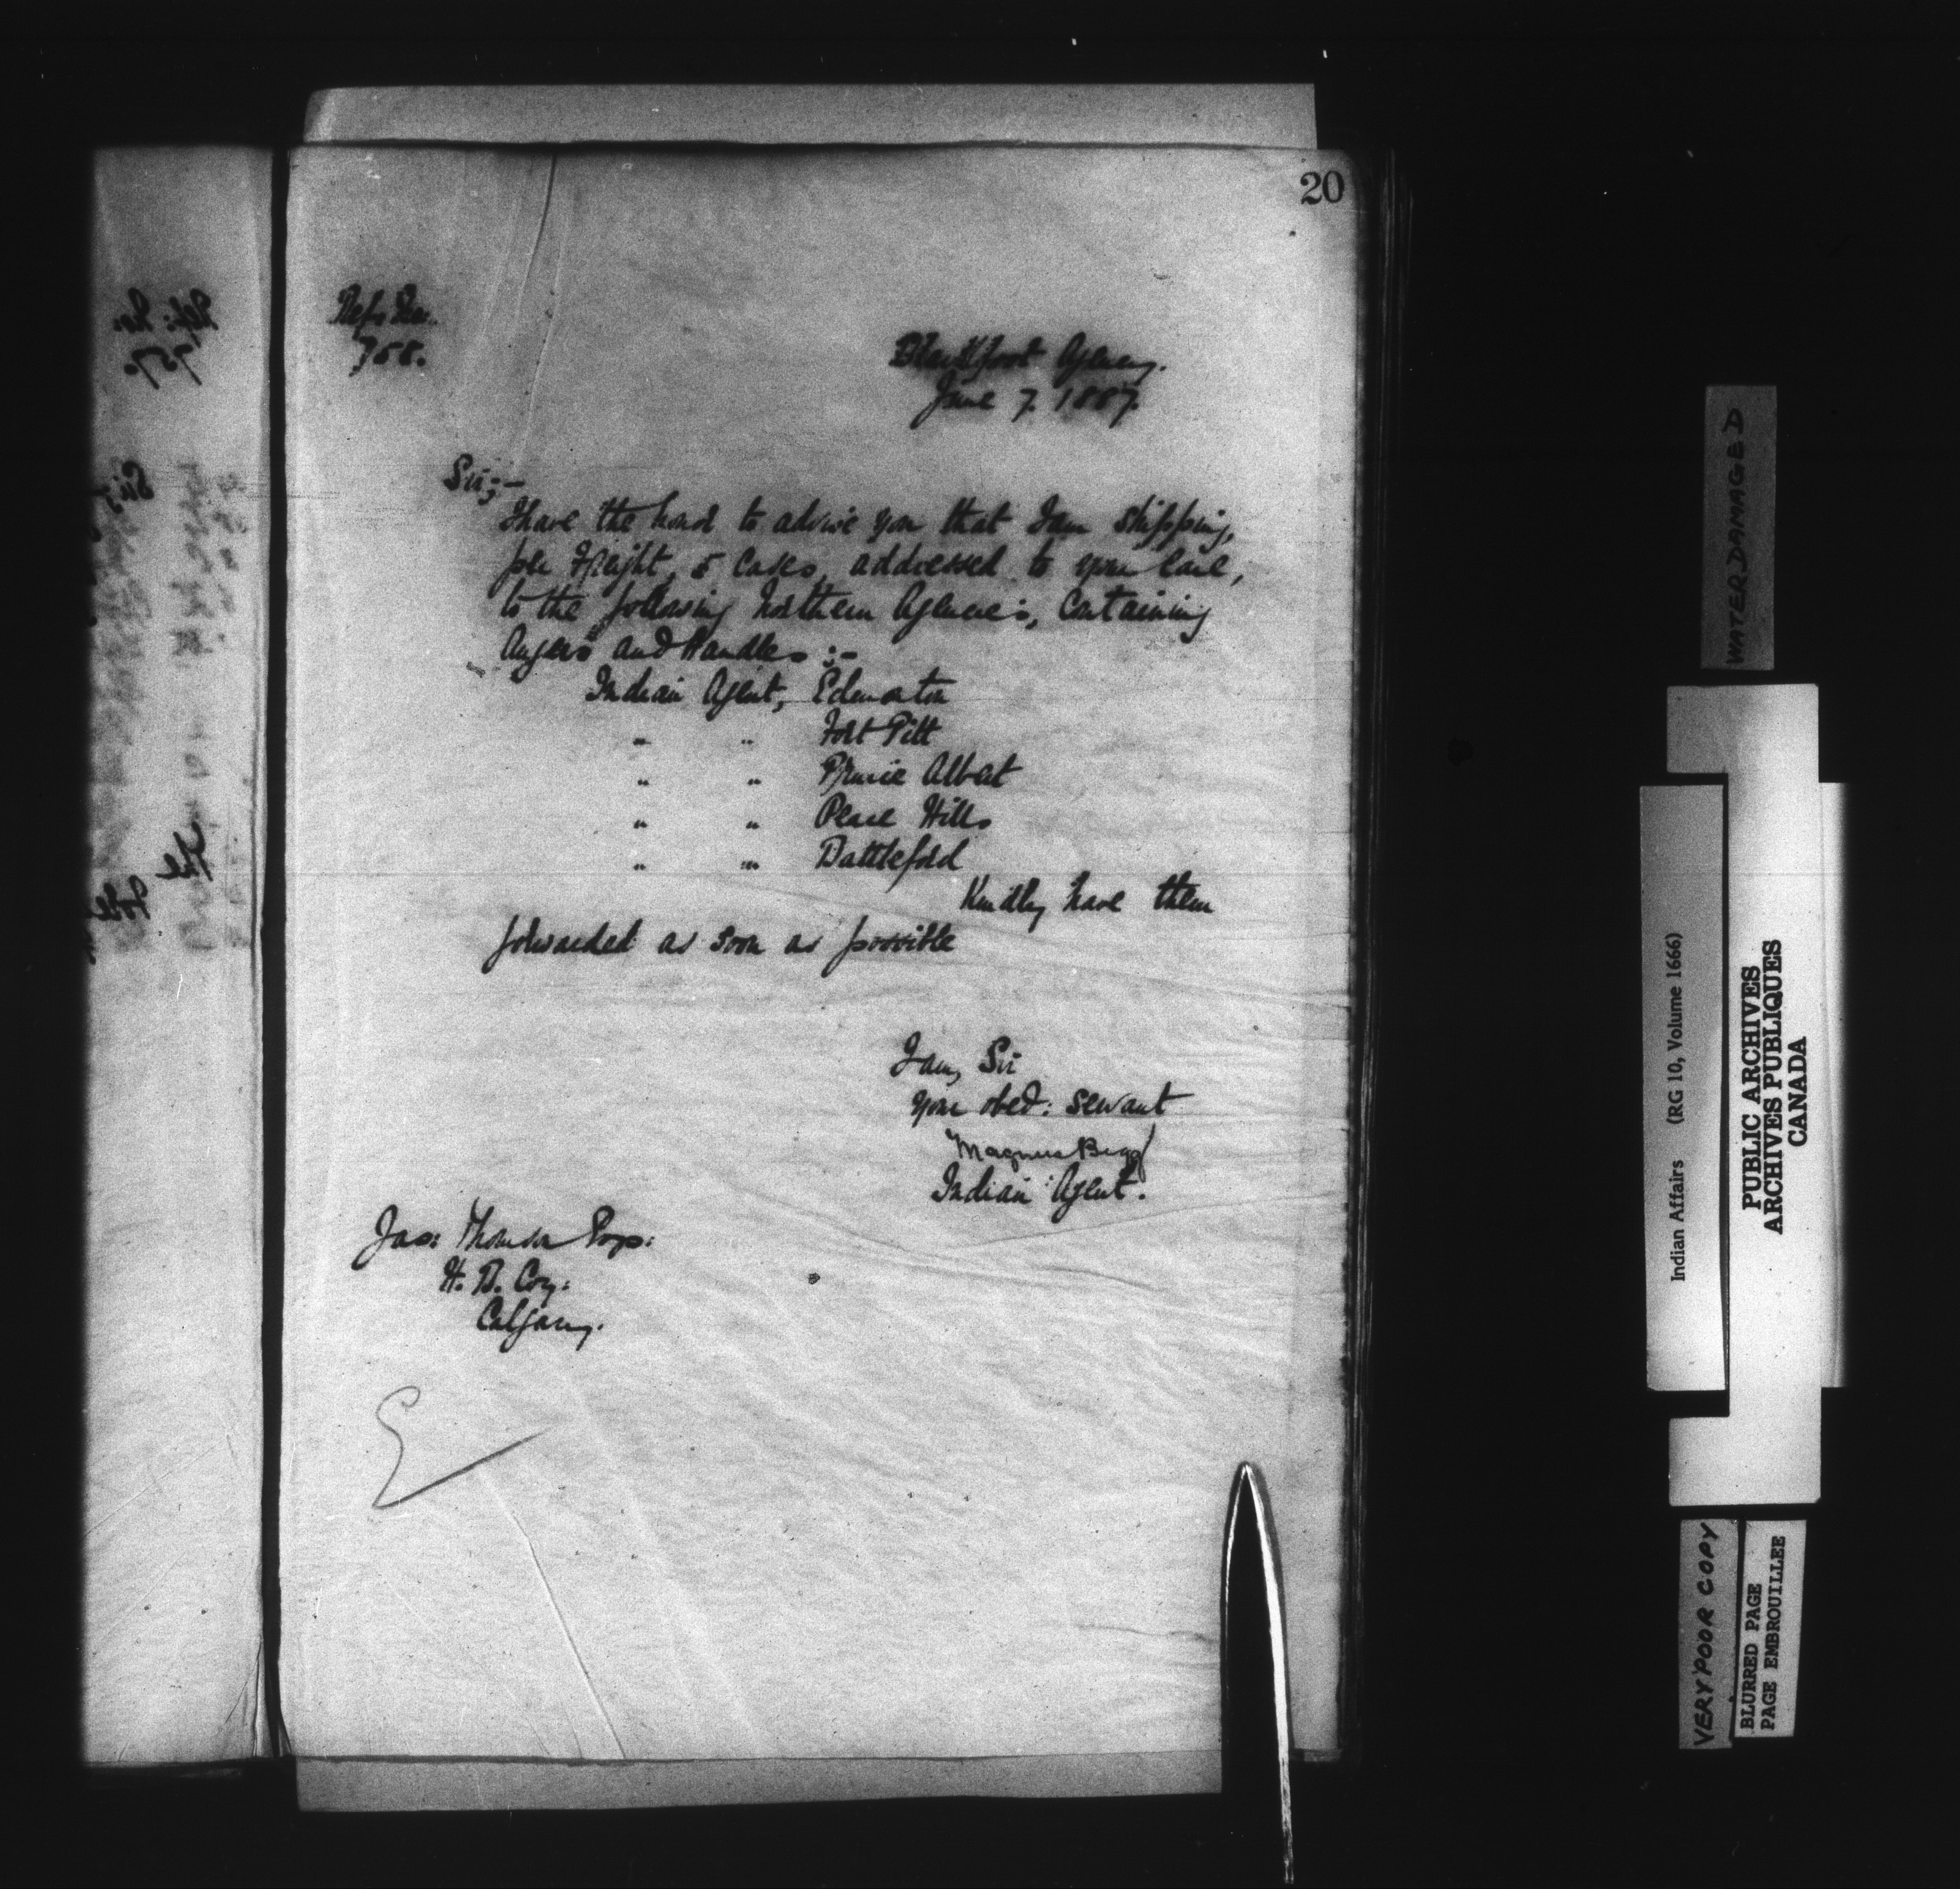 20
758.
Blackfoot Agency.
June 7. 1887.
Sir;-
I have the honor to advise you that I am shipping,
per Freight, 5 cases, addressed to your care,
to the following Northern Agencies, Containing
Augers and Handles :-
Indian Agent, Edmonton
" " Fort Pitt
" " Prince Albert
" " Peace Hills
" " Battleford
Kindly have them
forwarded as soon as possible
I am, Sir
Your obed: servant
Magnus Begg
Indian Agent.
Jas: Thomson
H. B. Coy:
Calgary.
WATERDAMAGED
Indian Affairs (RG 10, Volume 1666)
PUBLIC ARCHIVES
ARCHIVES PUBLIQUES
CANADA
VERY POOR COPY
BLURRED PAGE
PAGE EMBROUILLEE